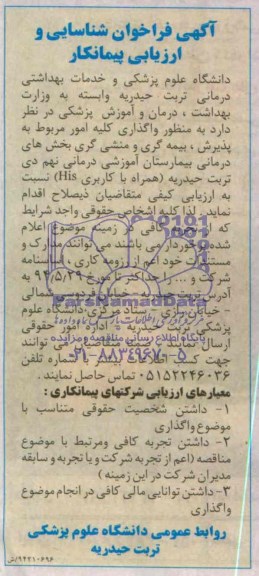 آگهی فراخوان شناسایی و
ارزیابی پیمانکار
دانشگاه علوم پزشکی و خدمات بهداشتی
درمانی تربت حیدریه وابسته به وزارت
بهداشت ، درمان و آموزش پزشکی در نظر
دارد به منظور واگذاری کلیه امور مربوط به
پذیرش ، بیمه گری و منشی گری بخش های
درمانی بیمارستان آموزشی درمانی نهم دی
تربت حیدریه (همراه با کاربری His) نسبت
به ارزیابی کیفی متقاضیان ذیصلاح اقدام
نماید. لذا کلیه اشخاص حقوقی واجد شرایط
که از تجربه کافی در زمینه موضوع اعلام
شده برخوردار می باشند می توانند مدارک و
مستندات خود اعم از رزومه کاری ، اساسنامه
شرکت و ... را حداکثر تا مورخ ۹۴/۵/۲۹ به
آدرس تربت حیدریه - خیابان فردوسی شمالی
- خیابان رازی - ستاد مرکزی دانشگاه علوم
پزشکی تربت حیدریه - اداره امور حقوقی
ارسال نمایند توانند
جهت کسب اطلاعات بیشتر با شماره تلفن
۰۵۱۵۲۲۴۶۰۳۶ تماس حاصل نمایند .
معیارهای ارزیابی شرکتهای پیمانکاری :
۱- داشتن شخصیت حقوقی متناسب با
موضوع واگذاری
۲- داشتن تجربه کافی ومرتبط با موضوع
مناقصه (اعم از تجربه شرکت و یا تجربه و سابقه
مدیران شرکت در این زمینه )
۳-داشتن توانایی مالی کافی در انجام موضوع
واگذاری
روابط عمومی دانشگاه علوم پزشکی
تربت حیدریه
۹۴۲۱۰۶۹۶/ش
ParsNamadData
پایگاه اطلاع رسانی مناقصه و مزایده
۰۲۱-۸۸۳۴۹۶۷۰-۵